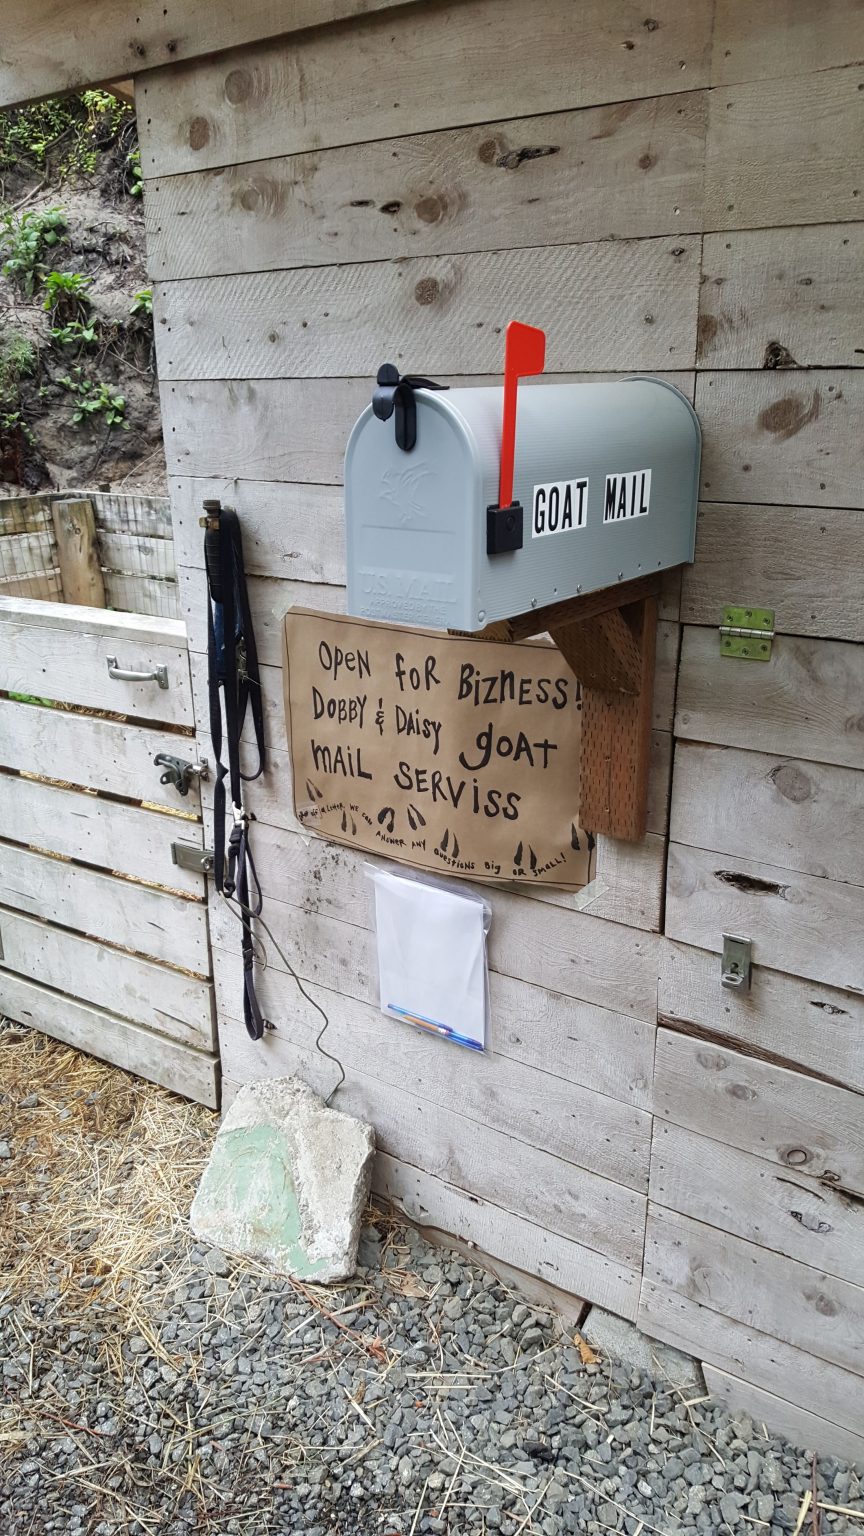 GOAT MAIL
U.S. MAIL
APPROVED BY THE
OPEN FOR BIZNESS!
DOBBY & DAISY GOAT
MAIL SERVISS
WE CAN ANSWER ANY QUESTIONS BIG OR SMALL!
2